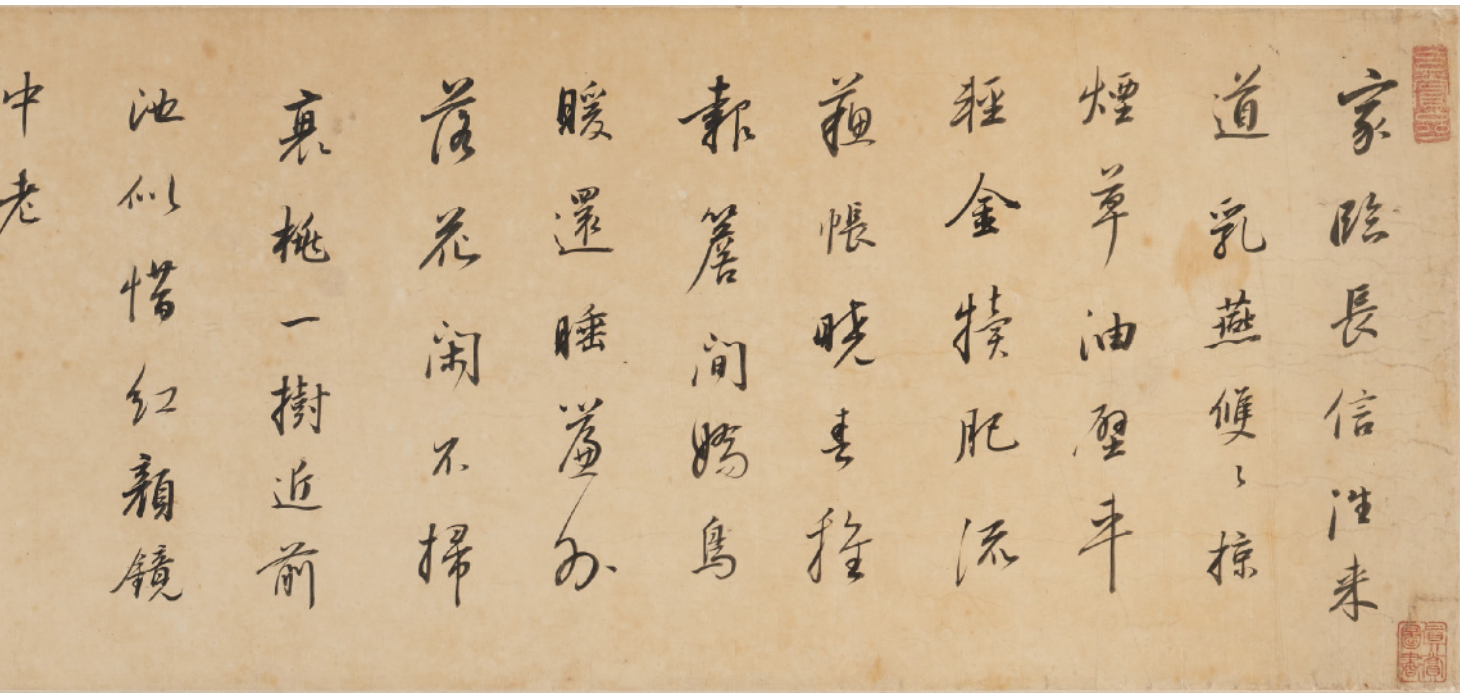 家臨長信往来
道乳燕雙〻掠
煙草油壁車
輕金犢肥流
蘓帳曉春雞
報簷間嬌鳥
暖還睡簾外
落花閑不掃
衰桃一樹近前
池似惜紅顏鏡
中老